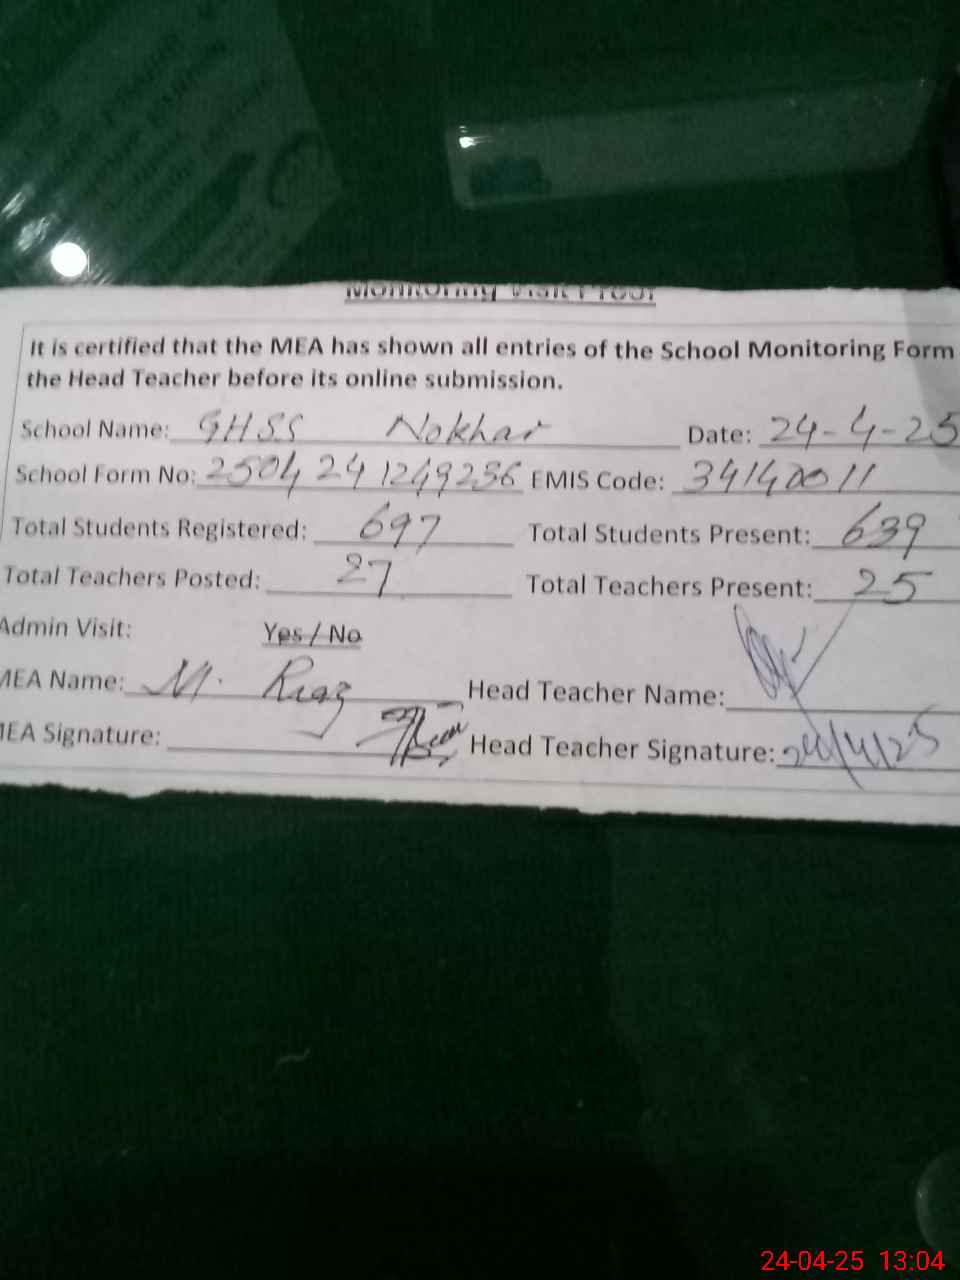 Monitoring Visit Proof
It is certified that the MEA has shown all entries of the School Monitoring Form
the Head Teacher before its online submission.
School Name: GHSS Nokhar Date: 24-4-25
School Form No: 2504241249236 EMIS Code: 34140011
Total Students Registered: 697 Total Students Present: 639
Total Teachers Posted: 27 Total Teachers Present: 25
Admin Visit: Yes / No
MEA Name: M. Riaz Head Teacher Name:
MEA Signature: Head Teacher Signature: 24/4/25
24-04-25 13:04